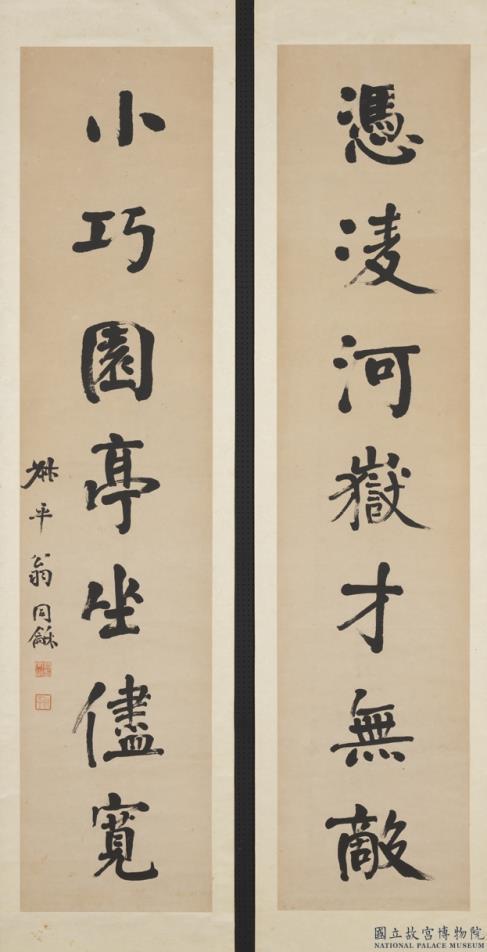 憑凌河嶽才無敵
小巧園亭坐儘寬
叔平翁同龢
國立故宮博物院
NATIONAL PALACE MUSEUM